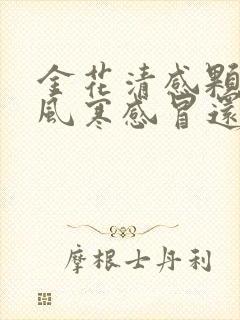 金花清感顆
風寒感冒還
摩根士丹利